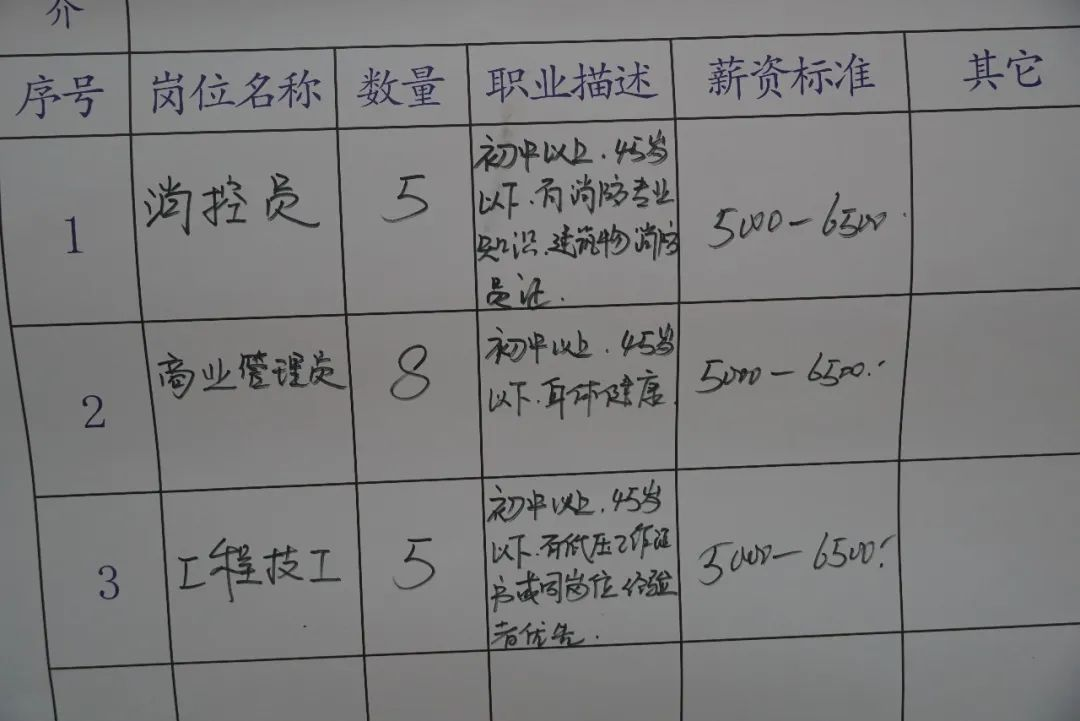 介
序号 岗位名称 数量 职业描述 薪资标准 其它
1 消控员 5 初中以上.45岁 5000-6500.
以下.有消防专业
知识.建筑物消防
员证.
2 商业管理员 8 初中以上.45岁 5000-6500.
以下.身体健康.
3 工程技工 5 初中以上.45岁 5000-6500.
以下.有低压工作证
书或同岗位经验
者优先.